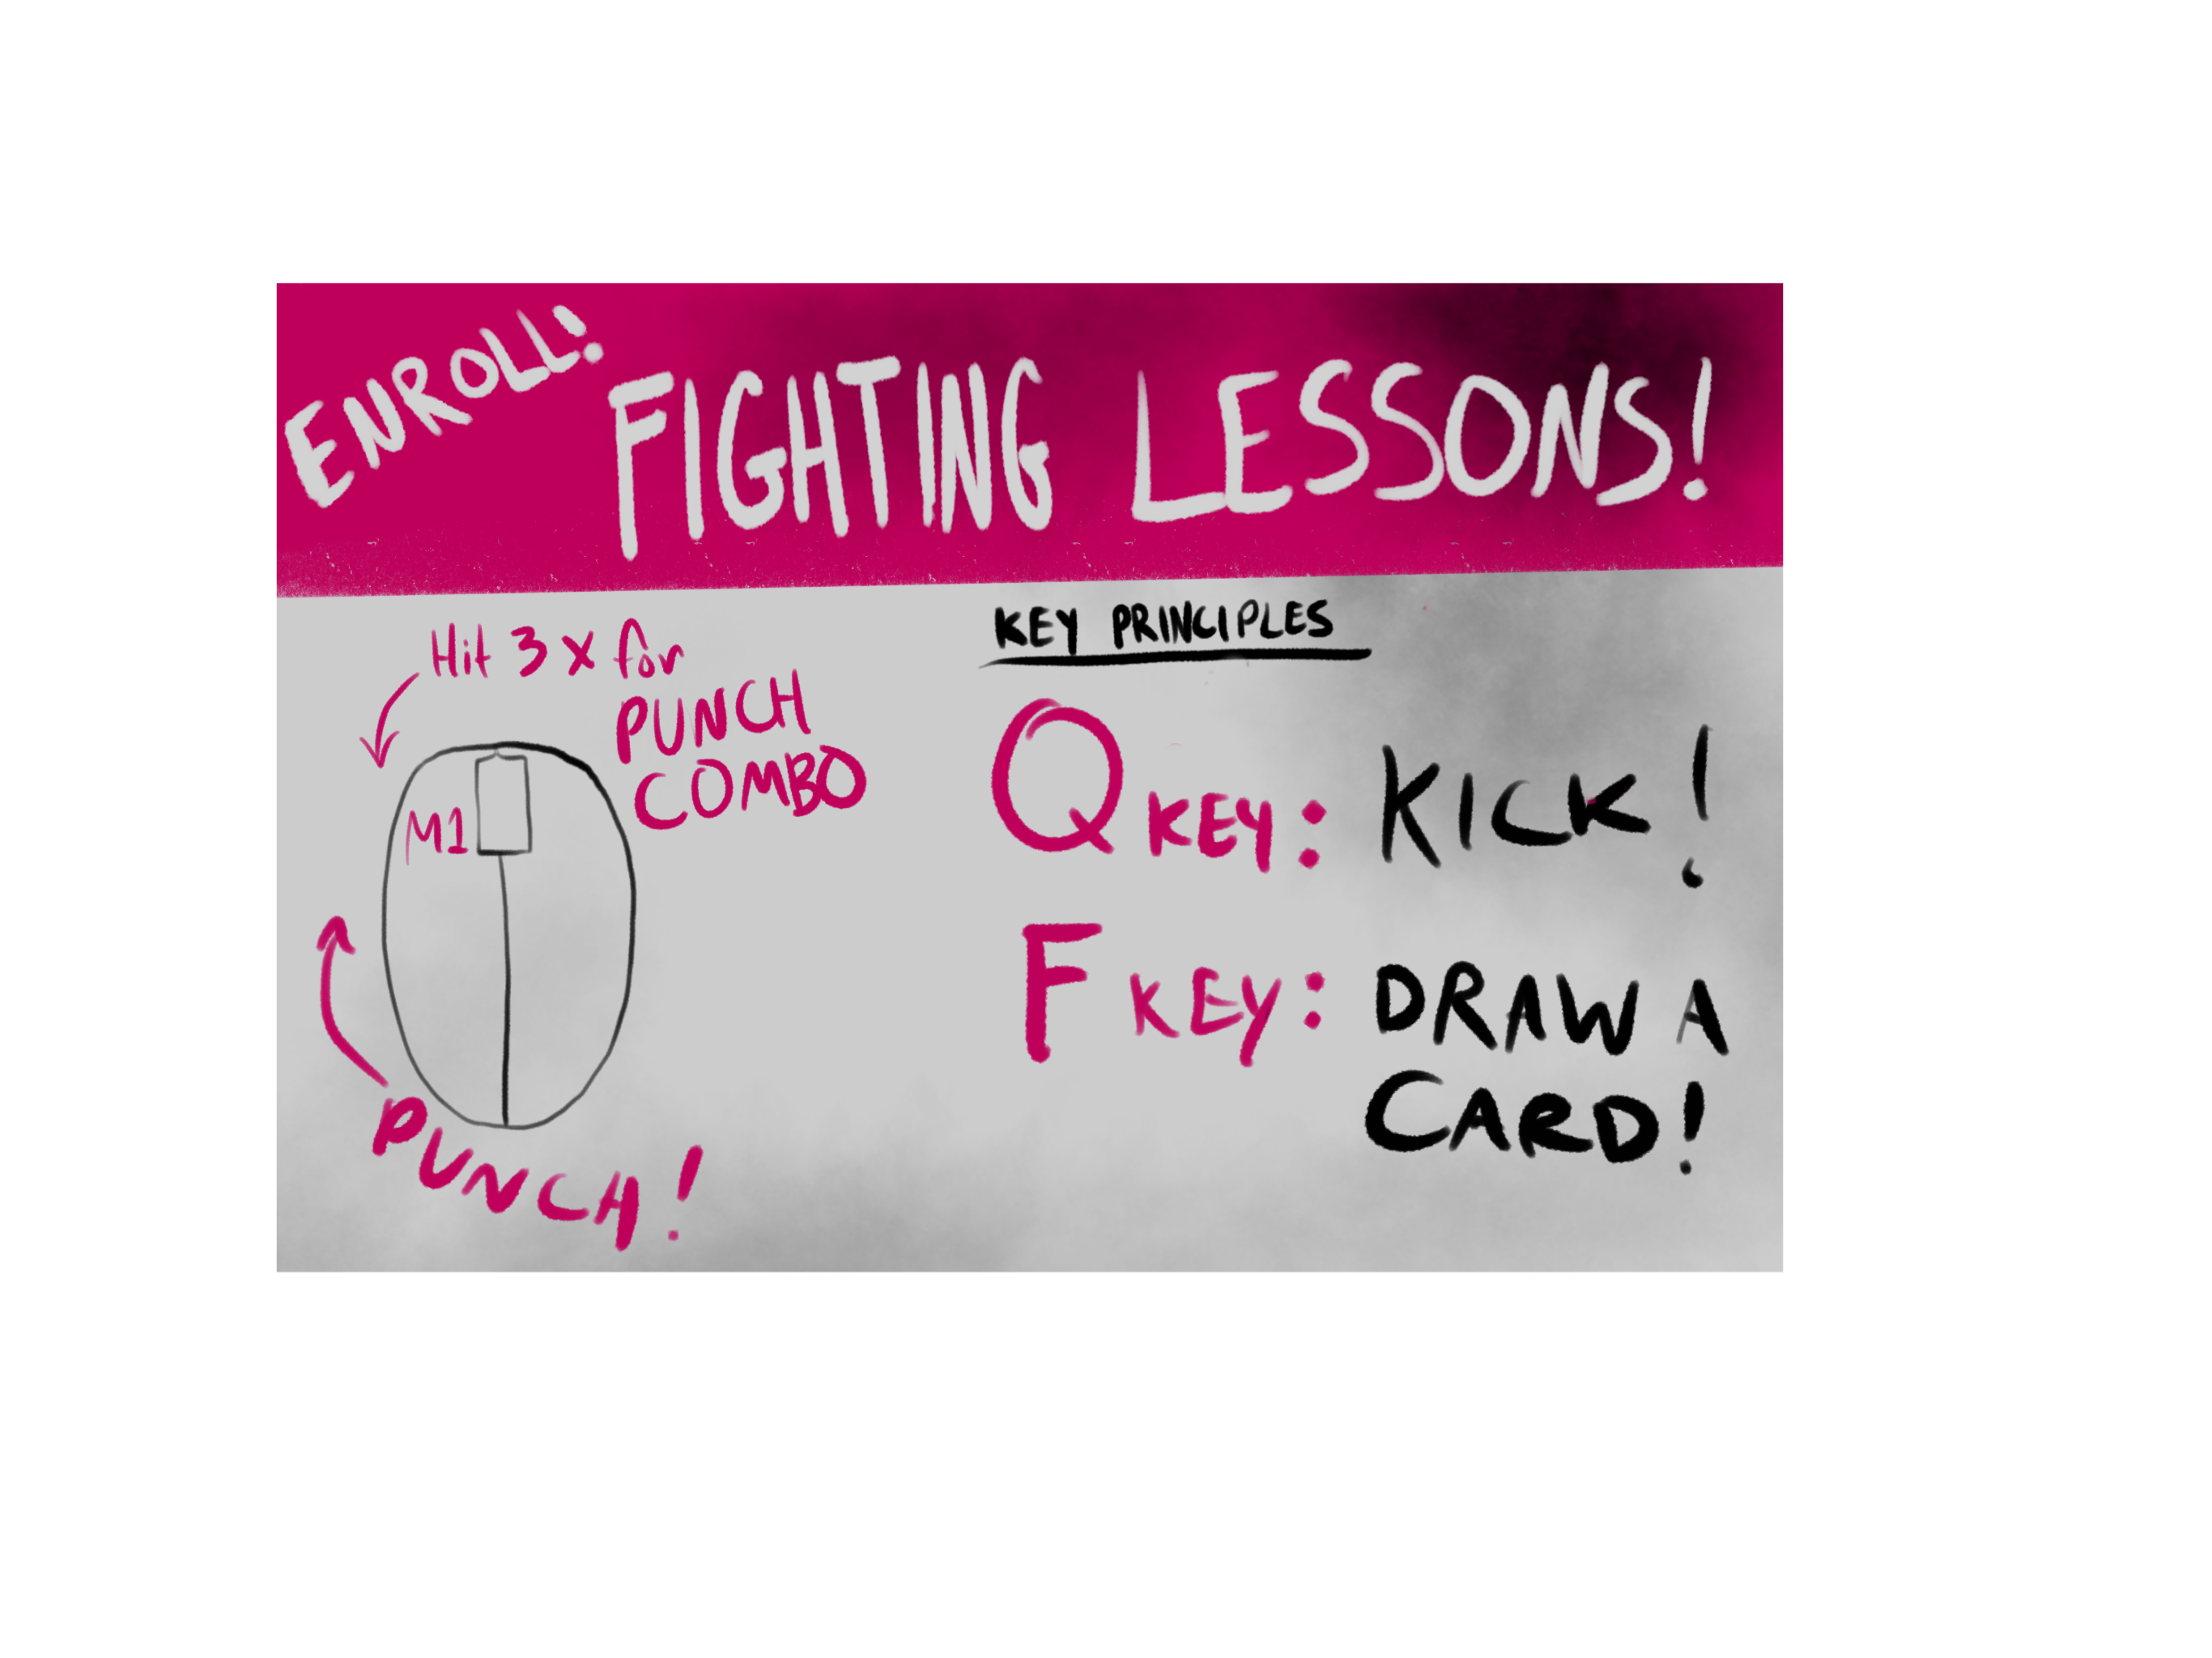 ENROLL!
FIGHTING LESSONS!
Hit 3 x for
PUNCH
COMBO
M1
PUNCH!
KEY PRINCIPLES
Q KEY: KICK!
F KEY: DRAW A
CARD!